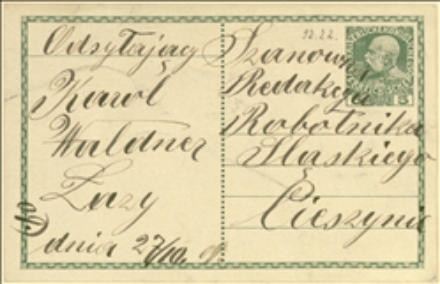 Odsyłający
Karol
Waldner
Łazy
dnia 27/10.
12.22.
Szanowna
Redakcya
Robotnika
Śląskiego
Cieszynie
5